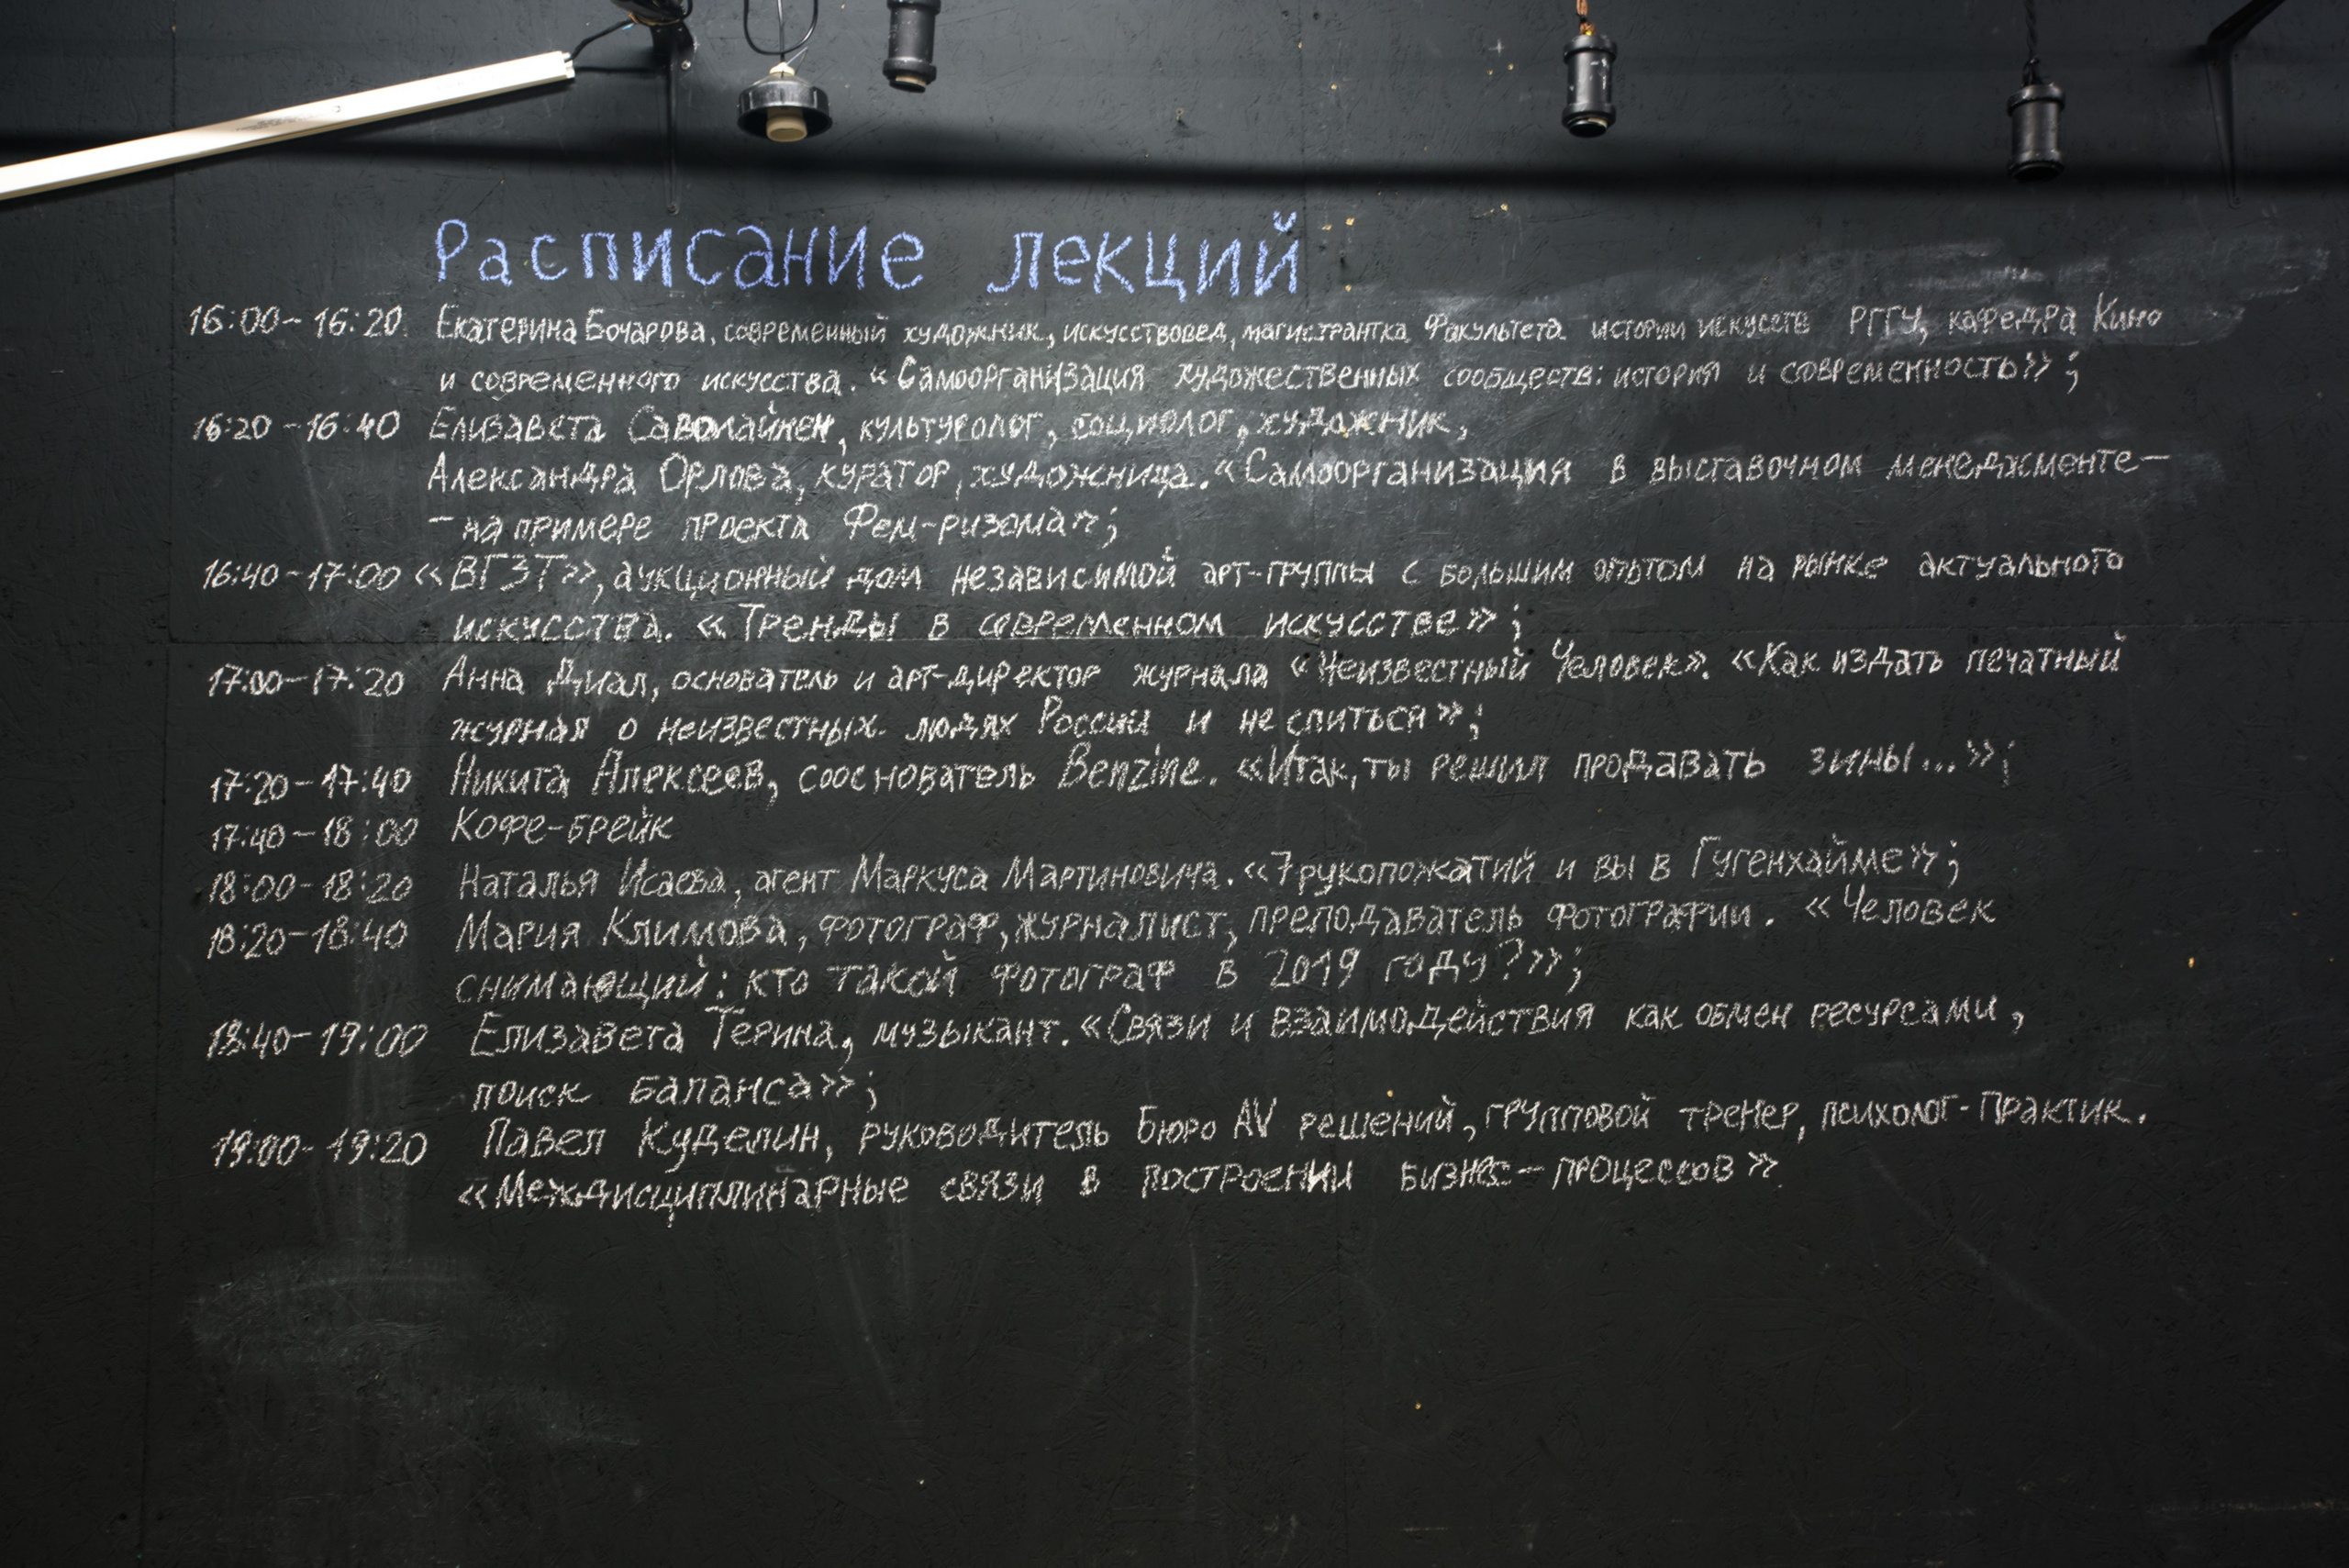 Расписание лекций
16:00-16:20 Екатерина Бочарова, современный художник, искусствовед, магистрантка Факультета истории искусств РГГУ, кафедра Кино
и современного искусства. «Самоорганизация художественных сообществ: история и современность»;
16:20-16:40 Елизавета Саволайнен, культуролог, социолог, художник,
Александра Орлова, куратор, художница. «Самоорганизация в выставочном менеджменте-
- на примере проекта Фем-ризома»;
16:40-17:00 «ВГЗТ», аукционный дом независимой арт-группы с большим опытом на рынке актуального
искусства. «Тренды в современном искусстве»;
17:00-17:20 Анна Диал, основатель и арт-директор журнала «Неизвестный Человек». «Как издать печатный
журнал о неизвестных людях России и не спиться»;
17:20-17:40 Никита Алексеев, сооснователь Benzine. «Итак, ты решил продавать зины...»;
17:40-18:00 Кофе-брейк
18:00-18:20 Наталья Исаева, агент Маркуса Мартиновича. «7 рукопожатий и вы в Гугенхайме»;
18:20-18:40 Мария Климова, фотограф, журналист, преподаватель фотографии. «Человек
снимающий: кто такой фотограф в 2019 году?»;
18:40-19:00 Елизавета Терина, музыкант. «Связи и взаимодействия как обмен ресурсами,
поиск баланса»;
19:00-19:20 Павел Куделин, руководитель Бюро AV решений, групповой тренер, психолог-практик.
«Междисциплинарные связи в построении бизнес-процессов»